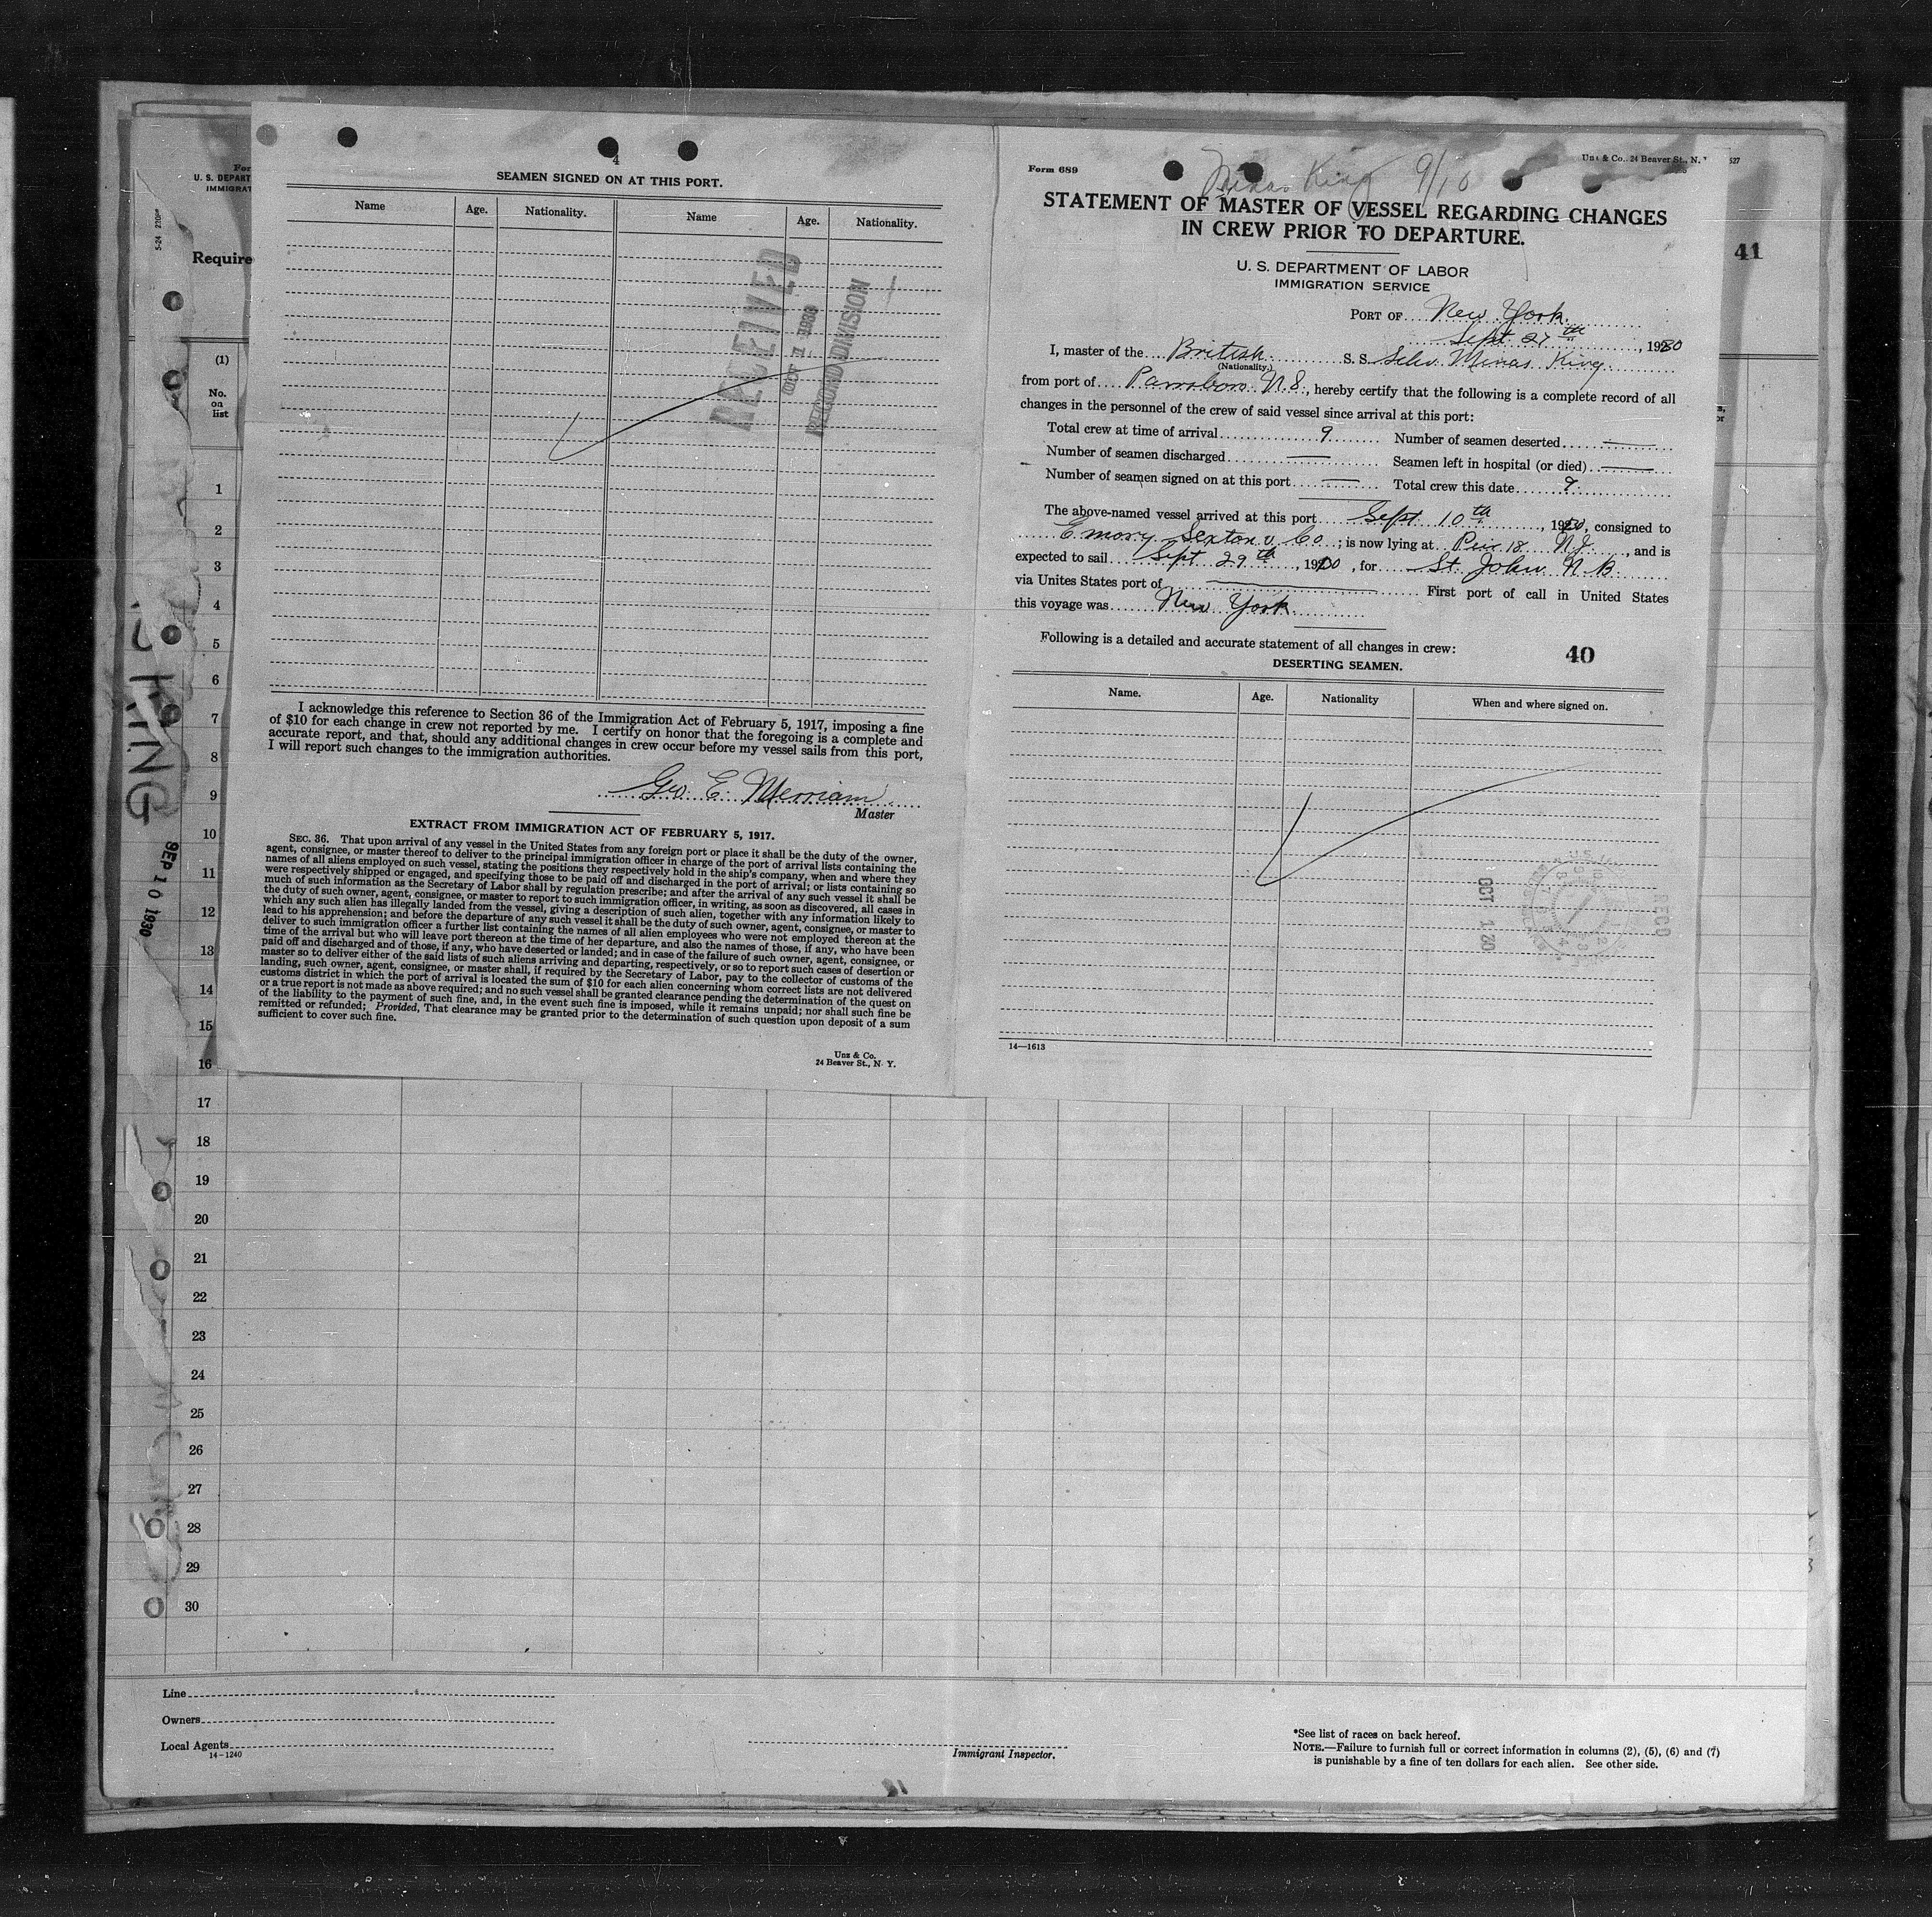 For
U. S. DEPART
IMMIGRAT
5-24
Require
(1)
No.
on
list
1
2
3
4
5
6
7
8
9
10
11
12
13
14
15
16
17
18
19
20
21
22
23
24
25
26
27
28
29
30
KING
SEP 10 1930
4
SEAMEN SIGNED ON AT THIS PORT.
Name Age. Nationality. Name Age. Nationality.
RECEIVED
1930
RECORD DIVISION
I acknowledge this reference to Section 36 of the Immigration Act of February 5, 1917, imposing a fine
of $10 for each change in crew not reported by me. I certify on honor that the foregoing is a complete and
accurate report, and that, should any additional changes in crew occur before my vessel sails from this port,
I will report such changes to the immigration authorities.
Geo E. Merriam
Master
EXTRACT FROM IMMIGRATION ACT OF FEBRUARY 5, 1917.
SEC. 36. That upon arrival of any vessel in the United States from any foreign port or place it shall be the duty of the owner,
agent, consignee, or master thereof to deliver to the principal immigration officer in charge of the port of arrival lists containing the
names of all aliens employed on such vessel, stating the positions they respectively hold in the ship's company, when and where they
were respectively shipped or engaged, and specifying those to be paid off and discharged in the port of arrival; or lists containing so
much of such information as the Secretary of Labor shall by regulation prescribe; and after the arrival of any such vessel it shall be
the duty of such owner, agent, consignee, or master to report to such immigration officer, in writing, as soon as discovered, all cases in
which any such alien has illegally landed from the vessel, giving a description of such alien, together with any information likely to
lead to his apprehension; and before the departure of any such vessel it shall be the duty of such owner, agent, consignee, or master to
deliver to such immigration officer a further list containing the names of all alien employees who were not employed thereon at the
time of the arrival but who will leave port thereon at the time of her departure, and also the names of those, if any, who have been
paid off and discharged and of those, if any, who have deserted or landed; and in case of the failure of such owner, agent, consignee, or
master so to deliver either of the said lists of such aliens arriving and departing, respectively, or so to report such cases of desertion or
landing, such owner, agent, consignee, or master shall, if required by the Secretary of Labor, pay to the collector of customs of the
customs district in which the port of arrival is located the sum of $10 for each alien concerning whom correct lists are not delivered
or a true report is not made as above required; and no such vessel shall be granted clearance pending the determination of the quest on
of the liability to the payment of such fine, and, in the event such fine is imposed, while it remains unpaid; nor shall such fine be
remitted or refunded; Provided, That clearance may be granted prior to the determination of such question upon deposit of a sum
sufficient to cover such fine.
Unz & Co.
24 Beaver St., N. Y.
Form 689
Minas King 9/10
Unz & Co., 24 Beaver St., N. Y 527
STATEMENT OF MASTER OF VESSEL REGARDING CHANGES
IN CREW PRIOR TO DEPARTURE.
U. S. DEPARTMENT OF LABOR
IMMIGRATION SERVICE
PORT OF New York
Sept 27th, 1930
I, master of the British S. S. Schr Minas King
(Nationality.)
from port of Parrsboro N.S., hereby certify that the following is a complete record of all
changes in the personnel of the crew of said vessel since arrival at this port:
Total crew at time of arrival 9 Number of seamen deserted —
Number of seamen discharged — Seamen left in hospital (or died) —
Number of seamen signed on at this port — Total crew this date 9
The above-named vessel arrived at this port Sept 10th, 1930, consigned to
Emory Sexton & Co; is now lying at Pier 18 N.J., and is
expected to sail Sept 29th, 1930, for St. John N.B.
via Unites States port of — First port of call in United States
this voyage was New York
Following is a detailed and accurate statement of all changes in crew:
40
DESERTING SEAMEN.
Name. Age. Nationality When and where signed on.
OCT 1 30
REC'D
14—1613
41
Line
Owners
Local Agents
14-1240
Immigrant Inspector.
*See list of races on back hereof.
NOTE.—Failure to furnish full or correct information in columns (2), (5), (6) and (7)
is punishable by a fine of ten dollars for each alien. See other side.